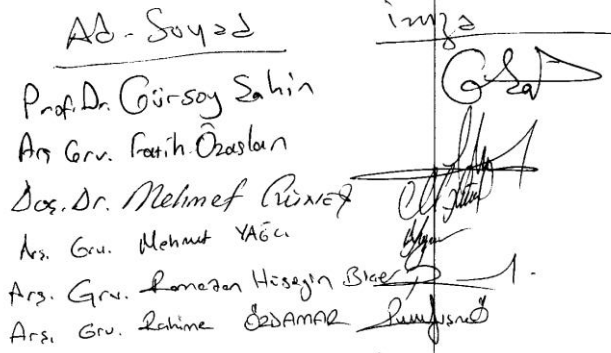 Ad-Soyad imza
Prof. Dr. Gürsoy Şahin
Arş Grv. Fatih Özaslan
Doç. Dr. Mehmet GÜNEŞ
Arş. Grv. Mehmut YAĞCI
Arş. Grv. Ramazan Hüseyin
Arş. Grv. Rahime ÖZDAMAR